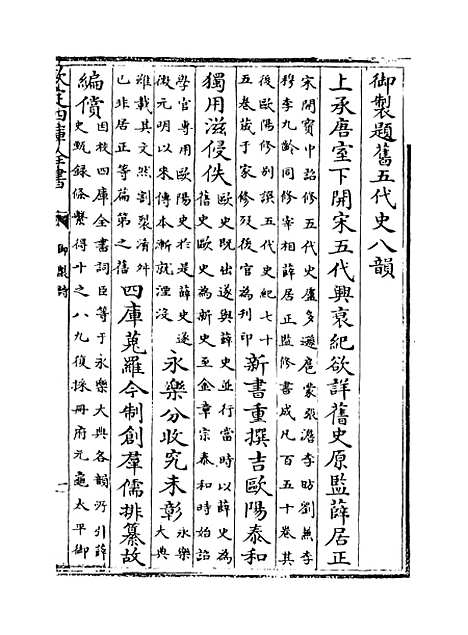 御製題舊五代史八韻
上承唐室下開宋五代興衰紀欲詳舊史原監薛居正
宋開寶中詔修五代史盧多遜扈蒙張澹李昉劉兼李
穆李九齡同修宰相薛居正監修書成凡百五十卷其
後歐陽修別撰五代史紀七十
五卷藏于家修歿後官為刋印
新書重撰吉歐陽泰和
獨用滋侵佚
歐史既出遂與薛史並行當時以薛史為
舊史歐史為新史至金章宗泰和時始詔
學官專用歐陽史於是薛史遂
微元明以來傳本漸就湮没
永樂分收究未彰
永樂
大典
雖載其文然割裂淆舛
已非居正等篇第之舊
四庫蒐羅今制創羣儒排纂故
編償
因校四庫全書詞臣等于永樂大典各韻所引薛
史甄録條繫得十之八九復採冊府元龜太平御
欽定四庫全書
御製詩
一